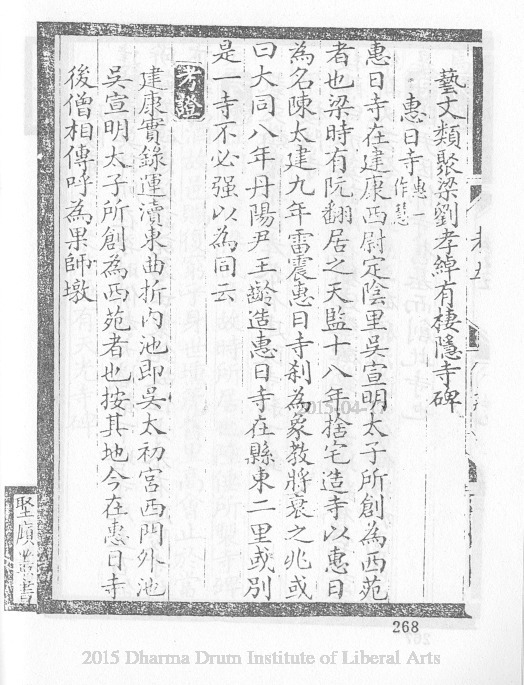 藝文類聚梁劉孝綽有棲隱寺碑
惠日寺惠一作慧
惠日寺在建康西尉定陰里吳宣明太子所創為西苑
者也梁時有阮翻居之天監十八年捨宅造寺以惠日
為名陳太建九年雷震惠日寺刹為象教將衰之兆或
曰大同八年丹陽尹王齡造惠日寺在縣東二里或別
是一寺不必强以為同云
考證
建康實錄運瀆東曲折內池即吳太初宮西門外池
吳宣明太子所創為西苑者也按其地今在惠日寺
後僧相傳呼為果師墩
卷五
堅頠叢書
2015-04-
268
2015 Dharma Drum Institute of Liberal Arts